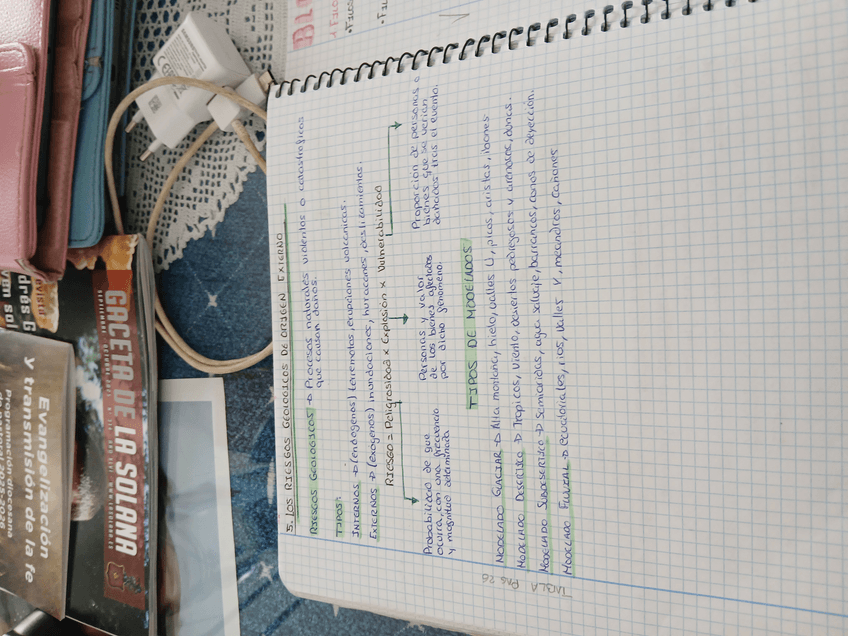 5. LOS RIESGOS GEOLOGICOS DE ORIGEN EXTERNO
RIESGOS GEOLOGICOS → Procesos naturales violentos o catastroficos
que causan daños.
TIPOS:
INTERNOS → (endogenos) terremotos, erupciones volcanicas.
EXTERNOS → (exogenos) inundaciones, huracanes, deslizamientos.
RIESGO = Peligrosidad x Explosión x Vulnerabilidad
Probabilidad de que
ocurra, con una frecuencia
y magnitud determinada
Personas y valor
de los bienes afectados
por dicho fenomeno.
Proporción de personas o
bienes que se verían
dañados tras el evento.
TIPOS DE MODELADOS
MODELADO GLACIAR → Alta montaña, hielo, valles U, picos, aristas, ibones
MODELADO DESERTICO → Tropicos, viento, desiertos pedregosos y arenosos, dunas.
MODELADO SUBDESERTICO → Semiaridas, agua salvaje, barrancos, conos de deyección.
MODELADO FLUVIAL → ecuatoriales, rios, valles V, meandros, cañones
TABLA PAG 26
GACETA DE LA SOLANA
Evangelización
y transmisión de la fe
Programación diocesana
de pastoral 2025-2026